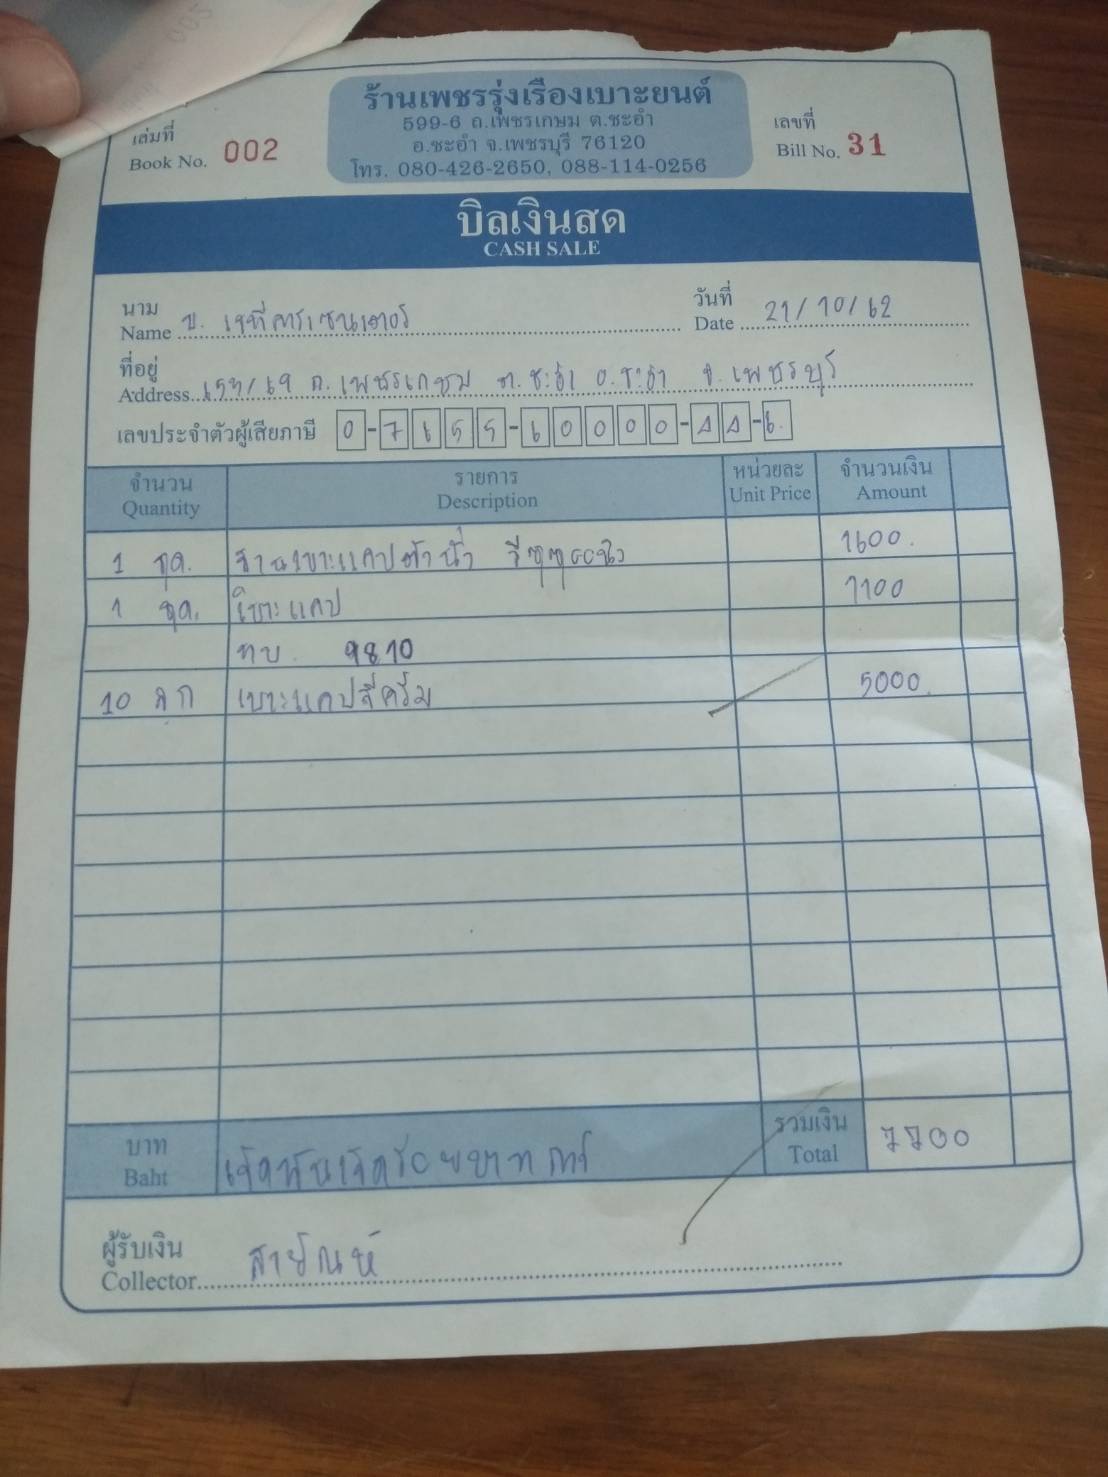 ร้านเพชรรุ่งเรืองเบาะยนต์
599-6 ถ.เพชรเกษม ต.ชะอำ
อ.ชะอำ จ.เพชรบุรี 76120
โทร. 080-426-2650, 088-114-0256
เล่มที่
Book No. 002
เลขที่
Bill No. 31
บิลเงินสด
CASH SALE
นาม
Name บ. เจทีคาร์เซนเตอร์
วันที่
Date 21/10/62
ที่อยู่
Address ถ.เพชรเกษม ต.ชะอำ อ.ชะอำ จ.เพชรบุรี
เลขประจำตัวผู้เสียภาษี 0-7655-60000-44-6
จำนวน รายการ หน่วยละ จำนวนเงิน
Quantity Description Unit Price Amount
1 ชุด. 1600.
1 ชุด. เบาะแคป 1100
ทบ. 9810
10 ลูก เบาะแคปสีครีม 5000
บาท
Baht เจ็ดพันเจ็ดร้อยบาท
รวมเงิน
Total 7700
ผู้รับเงิน
Collector สายัณห์